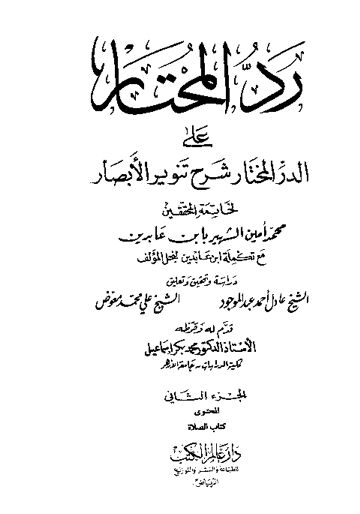 رد المحتار
على
الدر المختار شرح تنوير الأبصار
لخاتمة المحققين
محمد أمين الشهير بابن عابدين
مع تكملة ابن عابدين لنجل المؤلف
دراسة وتحقيق وتعليق
الشيخ عادل أحمد عبد الموجود الشيخ علي محمد معوض
قدم له وقرظه
الأستاذ الدكتور محمد بكر إسماعيل
كلية الدراسات - جامعة الأزهر
الجزء الثاني
المحتوى
كتاب الصلاة
دار عالم الكتب
للطباعة والنشر والتوزيع
الرياض